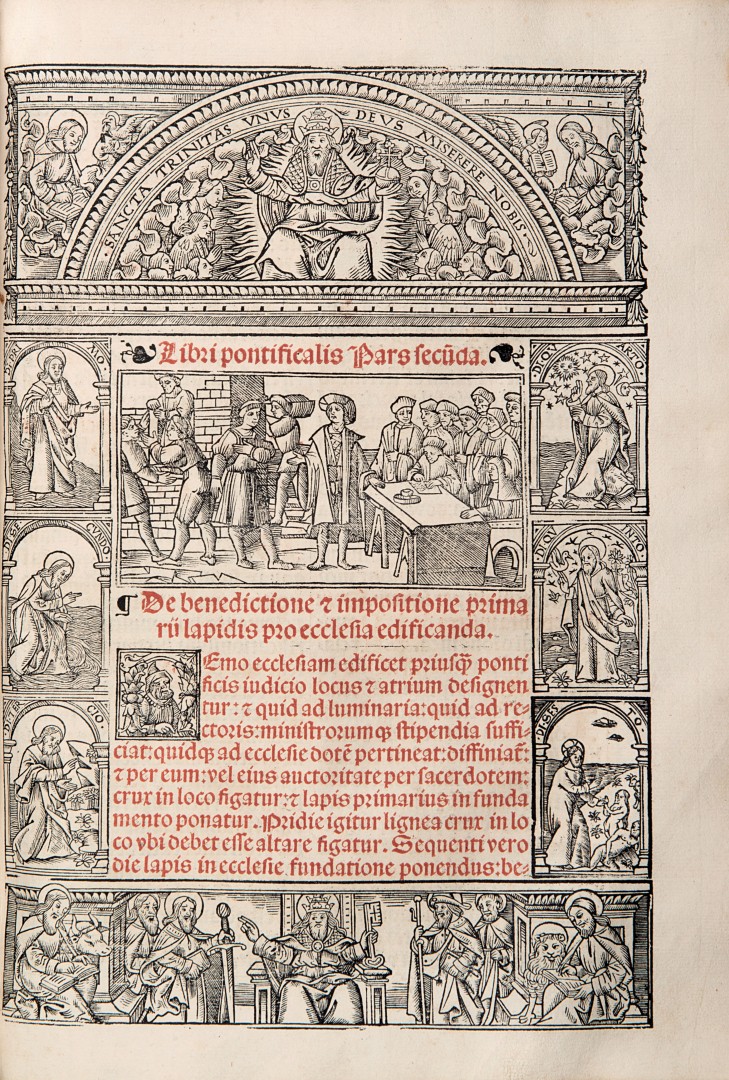 SANCTA TRINITAS VNVS DEVS MISERERE NOBIS
Libri pontificalis Pars secūda.
DI PRIMO
DI QVARTO
¶ De benedictione ⁊ impositione prima
rii lapidis pro ecclesia edificanda.
DI SECVNDO
DI QVINTO
NEmo ecclesiam edificet priusq̃ ponti
ficis iudicio locus ⁊ atrium designen
tur: ⁊ quid ad luminaria: quid ad re-
ctoris: ministrorumq; stipendia suffi-
ciat: quidq; ad ecclesie dotē pertineat: diffiniat̃:
⁊ per eum: vel eius auctoritate per sacerdotem:
crux in loco figatur: ⁊ lapis primarius in funda
mento ponatur. Pridie igitur lignea crux in lo
co vbi debet esse altare figatur. Sequenti vero
die lapis in ecclesie fundatione ponendus: be-